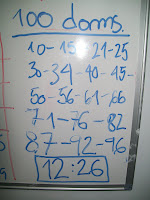 100 doms.
10-15-21-25
30-34-40-45-
50-56-61-66
71-76-82
87-92-96
12:26